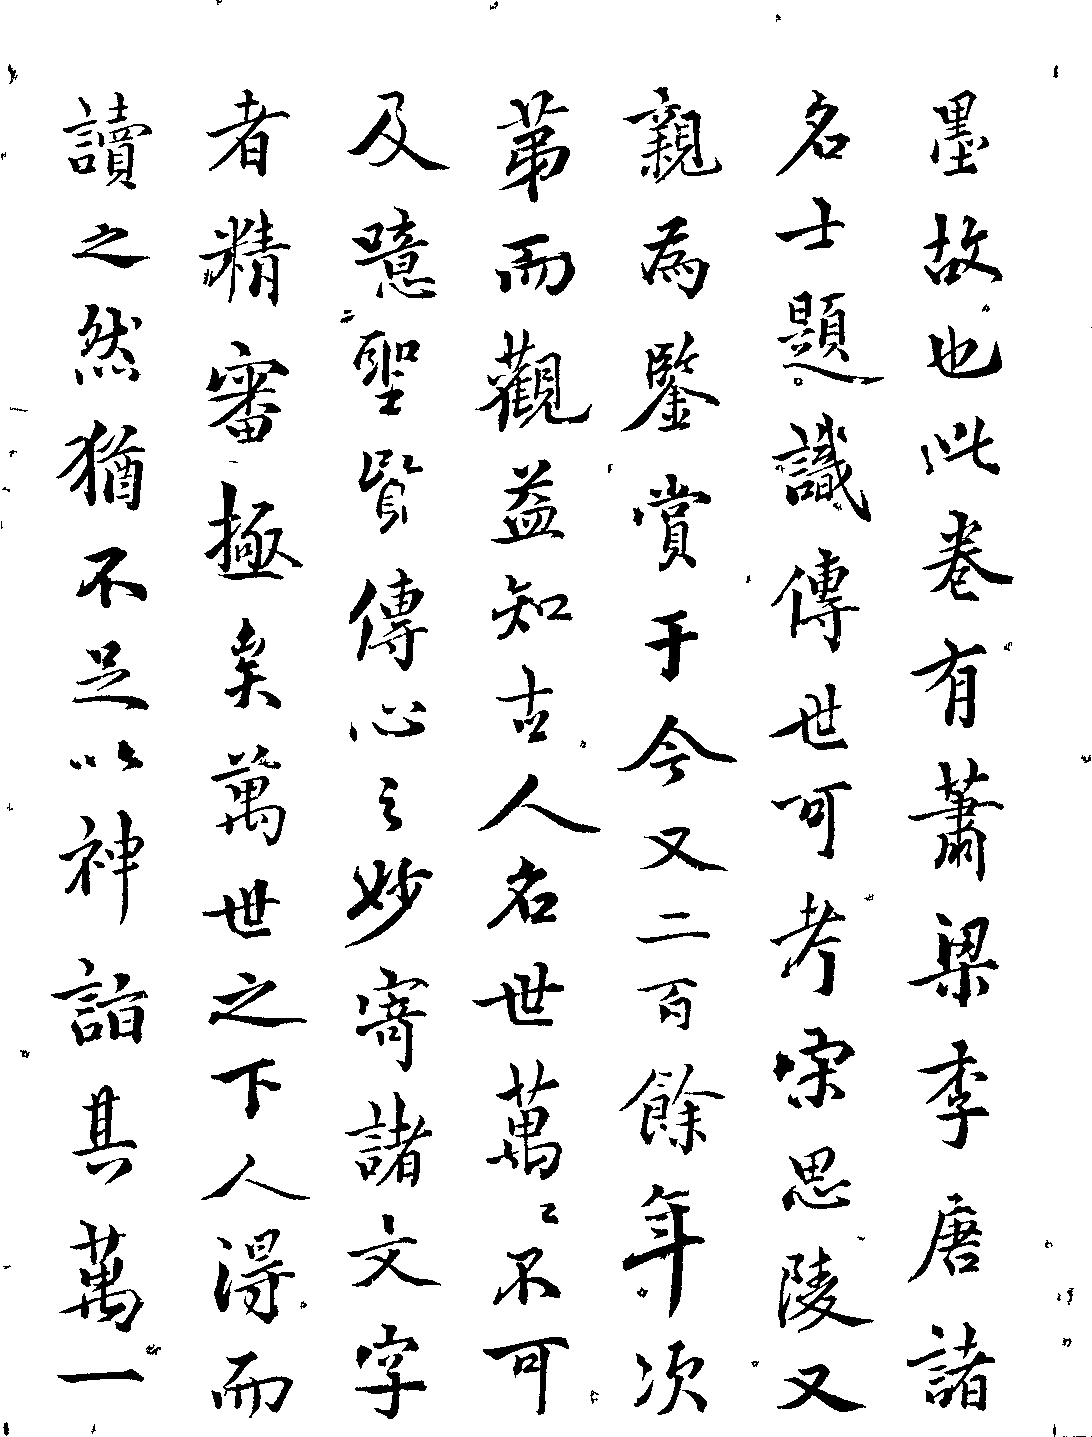 墨故也此卷有蕭梁李唐諸
名士題識傳世可考宋思陵又
親為鑒賞于今又二百餘年次
第而觀益知古人名世萬〻不可
及噫聖賢傳心之妙寄諸文字
者精審極矣萬世之下人得而
讀之然猶不足以神詣其萬一